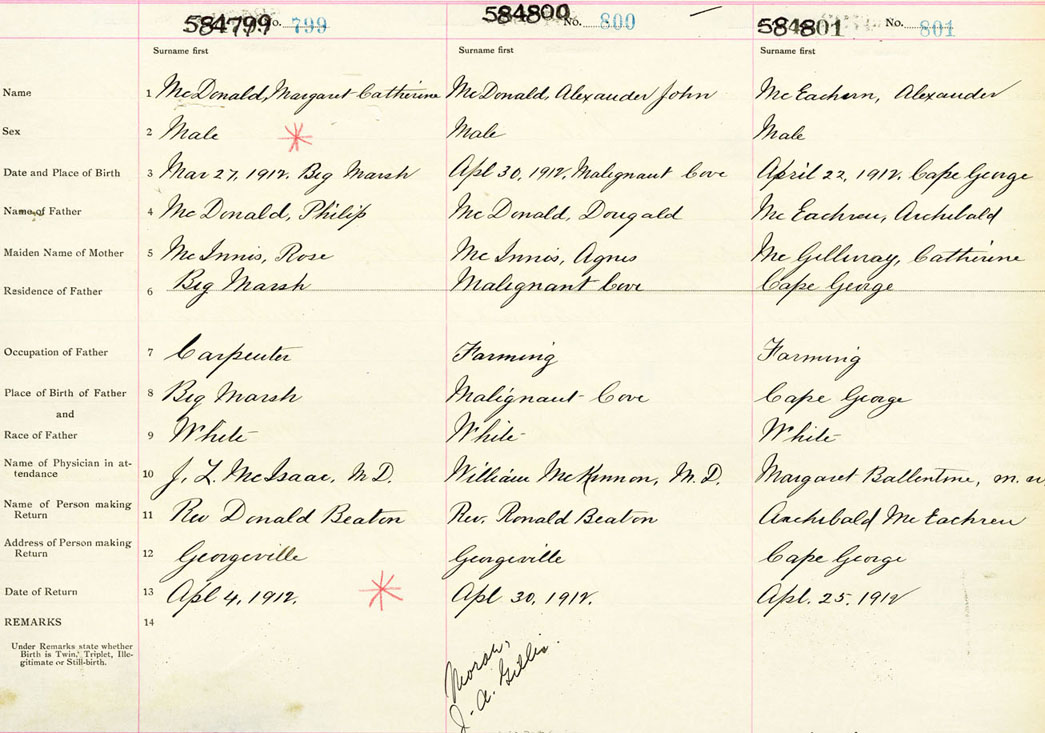 584799 No. 799 584800 No. 800 584801 No. 801
Surname first Surname first Surname first
Name 1 McDonald, Margaret Catherine McDonald, Alexander John McEachern, Alexander
Sex 2 Male Male Male
Date and Place of Birth 3 Mar 27, 1912. Big Marsh Apl 30, 1912, Malignant Cove April 22, 1912. Cape George
Name of Father 4 McDonald, Philip McDonald, Dougald McEachren, Archibald
Maiden Name of Mother 5 McInnis, Rose McInnis, Agnes McGillivray, Catherine
Residence of Father 6 Big Marsh Malignant Cove Cape George
Occupation of Father 7 Carpenter Farming Farming
Place of Birth of Father 8 Big Marsh Malignant Cove Cape George
and
Race of Father 9 White White White
Name of Physician in at-
tendance 10 J. L. McIsaac, M D. William McKinnon, M. D. Margaret Ballentine, m. w
Name of Person making
Return 11 Rev Donald Beaton Rev. Ronald Beaton Archibald McEachren
Address of Person making
Return 12 Georgeville Georgeville Cape George
Date of Return 13 Apl 4, 1912. Apl 30, 1912. Apl. 25, 1912
REMARKS 14
Under Remarks state whether
Birth is Twin, Triplet, Ille-
gitimate or Still-birth.
J. A. Gillis